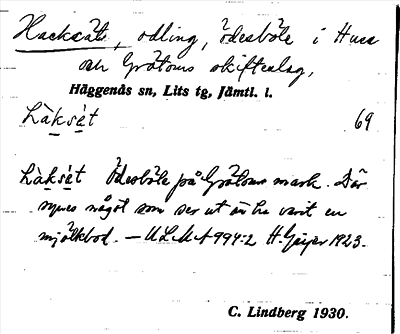 Hacksäte, odling, ödesböle i Husa
och Gråtoms skifteslag,
Häggenås sn, Lits tg, Jämtl. l.
Làksét 69
Làksét Ödesböle på Gråtoms mark. Där
synes något som ser ut än ha varit en
mjölkbod. — ULMA 994:2 H. Geijer 1923.
C. Lindberg 1930.